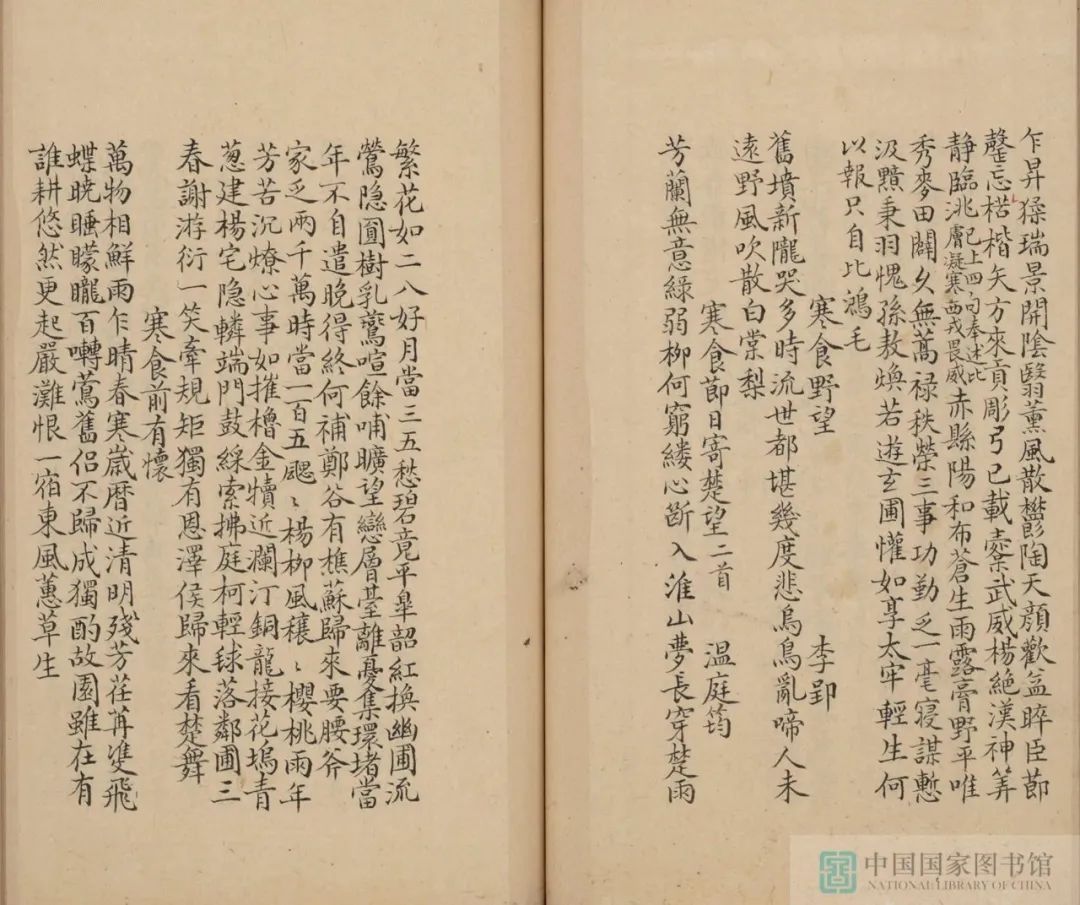 乍昇猱瑞景開陰翳薰風散鬱陶天顔歡益睟臣節
罄忘楛楛矢方來貢彫弓已載櫜武威楊絶漢神筭
静臨洮已上四句奉述比膚凝寒西戎畏威赤縣陽和布蒼生雨露膏野平唯
秀麥田闢久無蒿禄秩榮三事功勤乏一毫寢謀慙
汲黯秉羽愧孫敖焕若遊玄圃懽如享太牢輕生何
以報只自比鴻毛
寒食野望 李郢
舊墳新隴哭多時流世都堪幾度悲烏鳥亂啼人未
遠野風吹散白棠梨
寒食節日寄楚望二首 温庭筠
芳蘭無意綠弱柳何窮縷心断入淮山夢長穿楚雨
繁花如二八好月當三五愁碧竟平臯韶紅換幽圃流
鶯隐圓樹乳鷰喧餘哺曠望戀層臺離憂集環堵當
年不自遣晚得終何補鄭谷有樵蘇歸來要腰斧
家乏兩千萬時當一百五飃〻楊柳風穰〻櫻桃雨年
芳苦沉燎心事如摧櫓金犢近瀾汀銅龍接花塢青
葱建楊宅隐轔端門鼓綵索拂庭柯輕毬落鄰圃三
春謝游衍一笑牽規矩獨有恩澤侯歸來看楚舞
寒食前有懷
萬物相鮮雨乍晴春寒崴暦近清明殘芳荏苒雙飛
蝶晓睡矇曨百囀鶯舊侣不歸成獨酌故園雖在有
誰耕悠然更起嚴灘恨一宿東風蕙草生
中国国家图书馆
NATIONAL LIBRARY OF CHINA